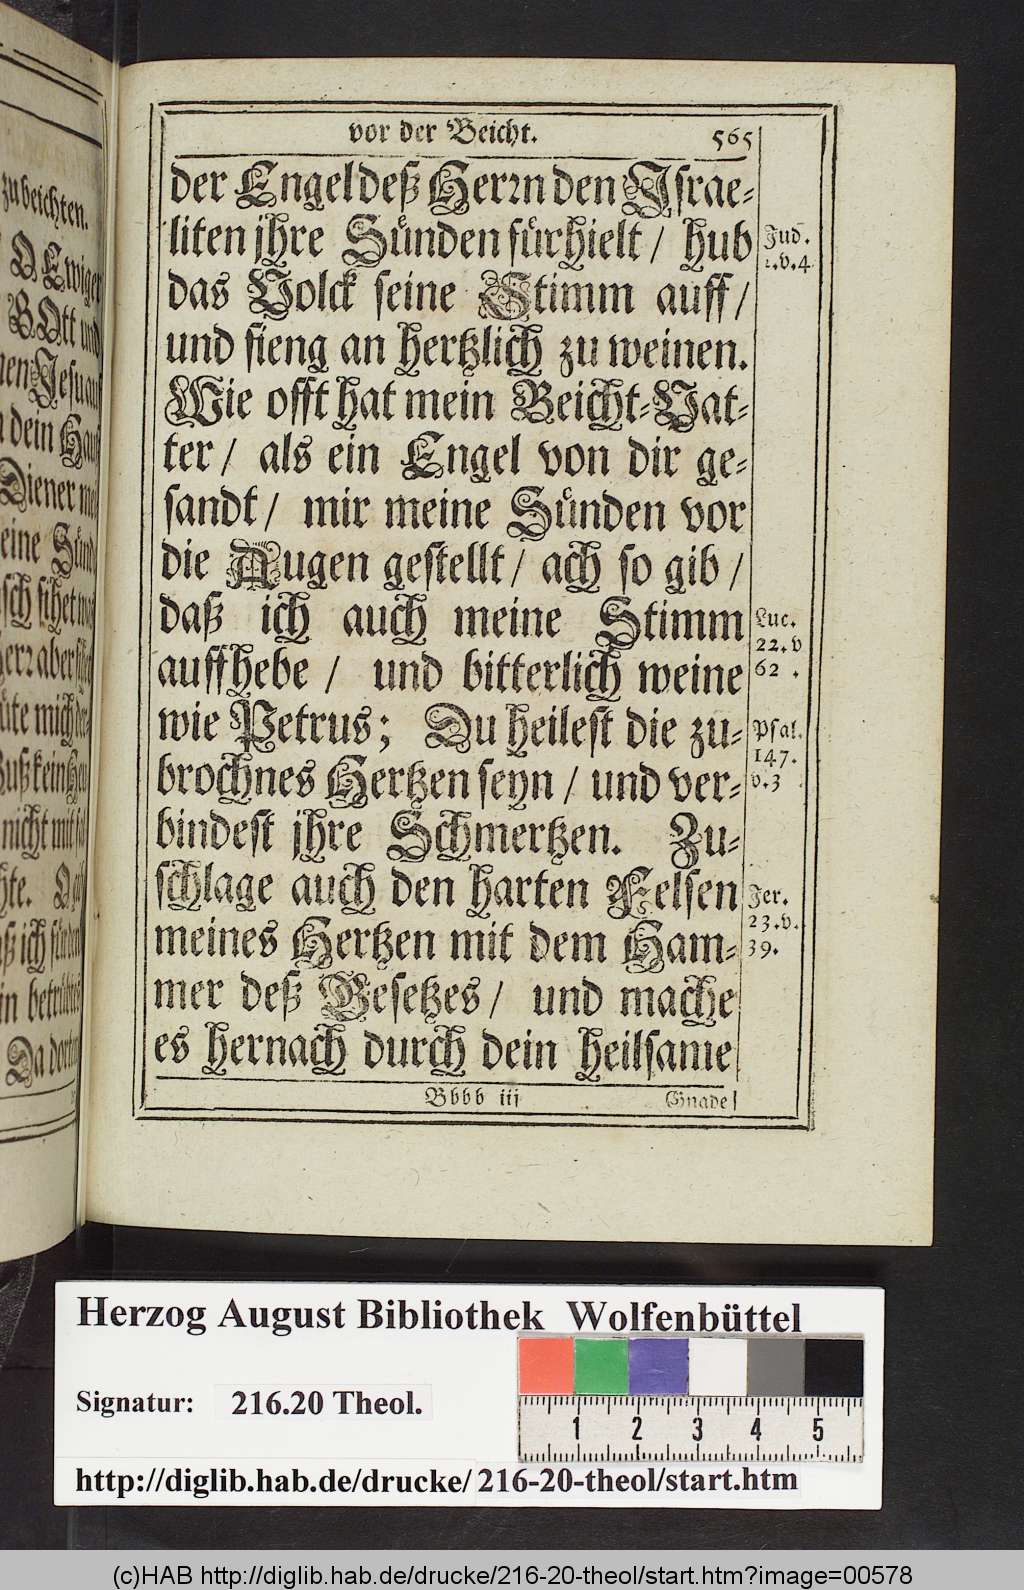 zu beichten.
O Ewiger
GOtt und
Jesu
dein Hauß
Diener
eine Sünd
sihet
aber
mich der
nicht mit
ich für
betrübtes
Da dort
vor der Beicht. 565
der Engel deß HErrn den Israe-
liten jhre Sünden fürhielt / hub
das Volck seine Stimm auff /
und fieng an hertzlich zu weinen.
Wie offt hat mein Beicht-Vat-
ter / als ein Engel von dir ge-
sandt / mir meine Sünden vor
die Augen gestellt / ach so gib /
daß ich auch meine Stimm
auffhebe / und bitterlich weine
wie Petrus; Du heilest die zu-
brochnes Hertzen seyn / und ver-
bindest jhre Schmertzen. Zu-
schlage auch den harten Felsen
meines Hertzen mit dem Ham-
mer deß Gesetzes / und mache
es hernach durch dein heilsame
Bbbb iij Gnade /
Jud.
2.v.4
Luc.
22.v
62.
Psal.
147.
v.3
Jer.
23.v.
39.
Herzog August Bibliothek Wolfenbüttel
Signatur: 216.20 Theol.
1 2 3 4 5
http://diglib.hab.de/drucke/216-20-theol/start.htm
(c)HAB http://diglib.hab.de/drucke/216-20-theol/start.htm?image=00578